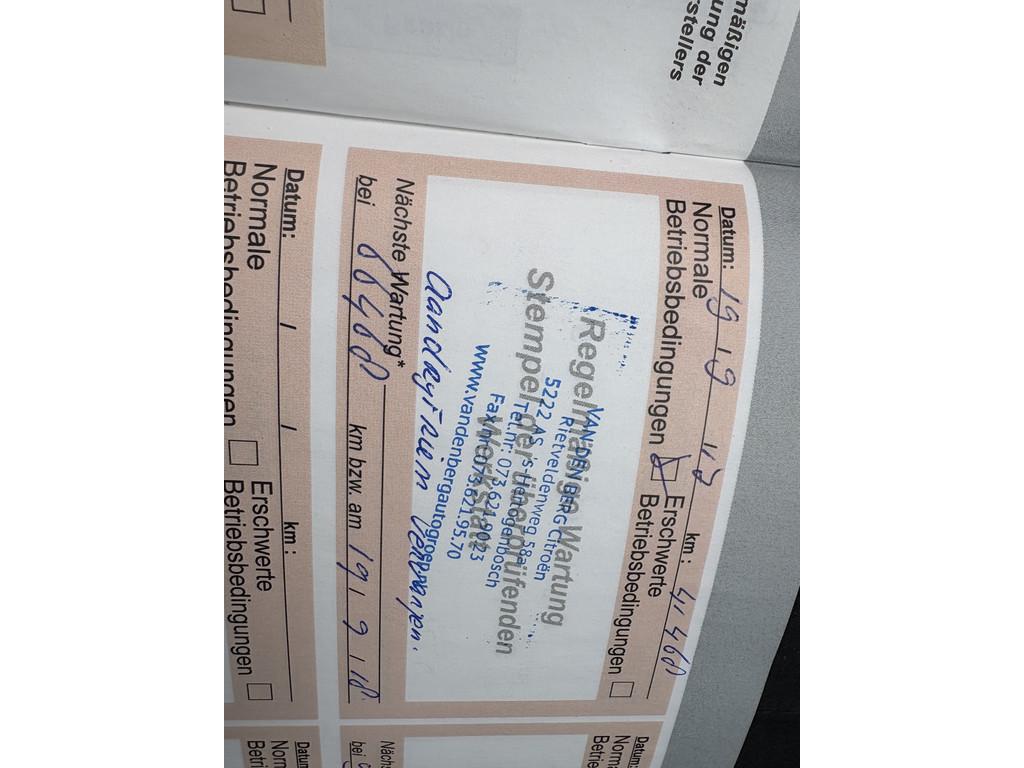 mäßigen
ung der
stellers
Datum: 19 / 9 / km: 41.460
Normale Betriebsbedingungen
Erschwerte Betriebsbedingungen
Regelmäßige Wartung
Stempel der überprüfenden
Werkstatt
VAN DEN BERG Citroën
Rietveldenweg 58a
5222 AS 's-Hertogenbosch
Tel.nr: 073.621.9023
Fax.nr: 073.621.95.70
www.vandenbergautogroep.nl
Aandrijfriem vervangen.
Nächste Wartung*
bei 66460 km bzw. am 19 / 9 / 18
Datum: / / km:
Normale Betriebsbedingungen
Erschwerte Betriebsbedingungen
Datum:
Betrieb
Nächs
bei
Datum:
Norm
Betrieb